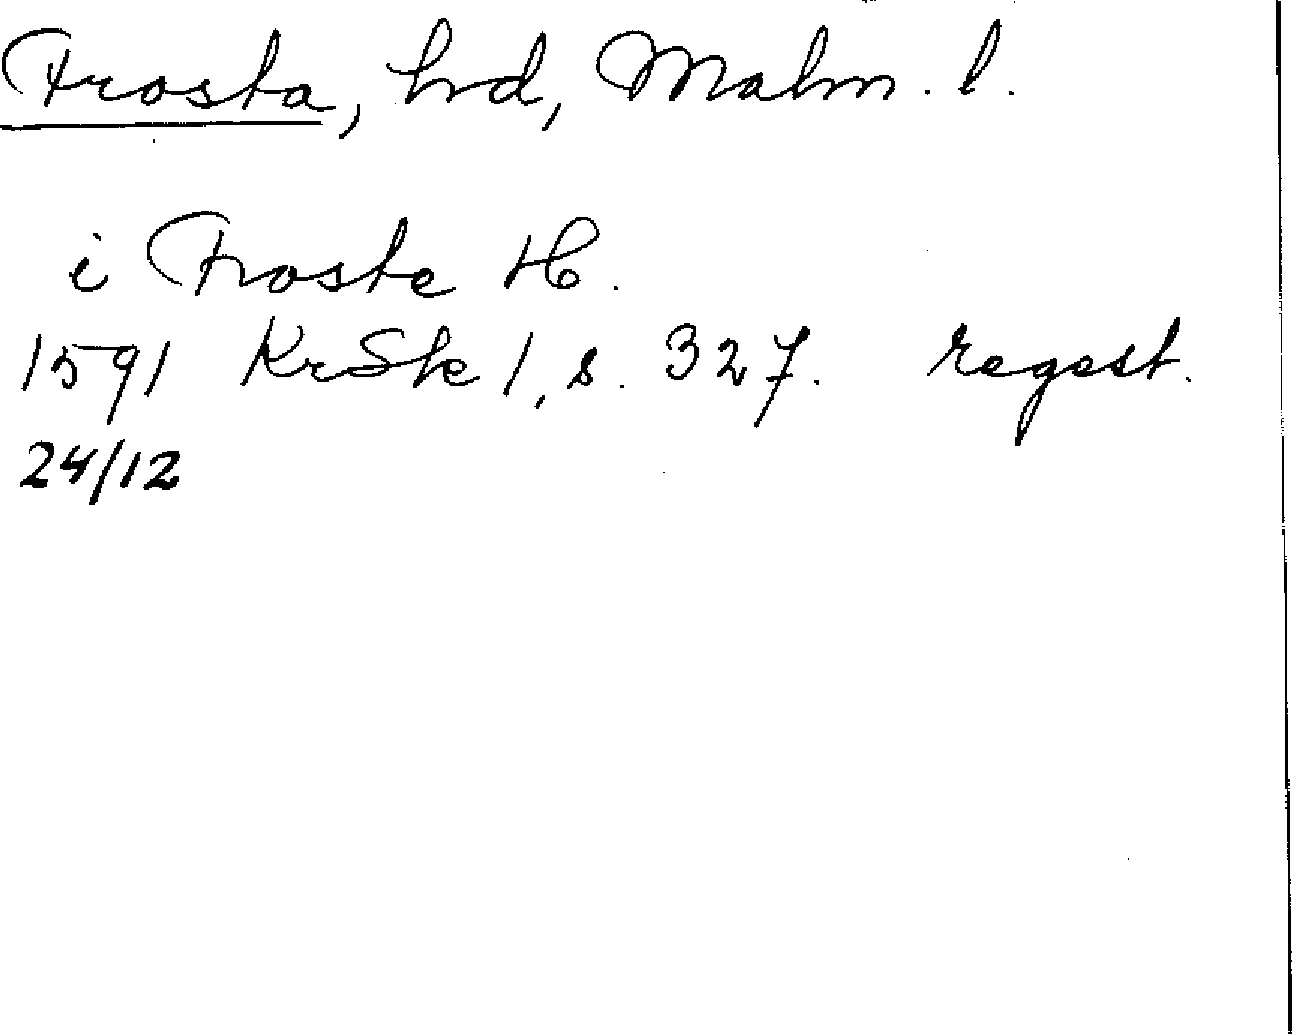 Frosta, hrd, Malm. l.
i Froste H.
1591 KrSk 1, s. 327. regest.
24/12